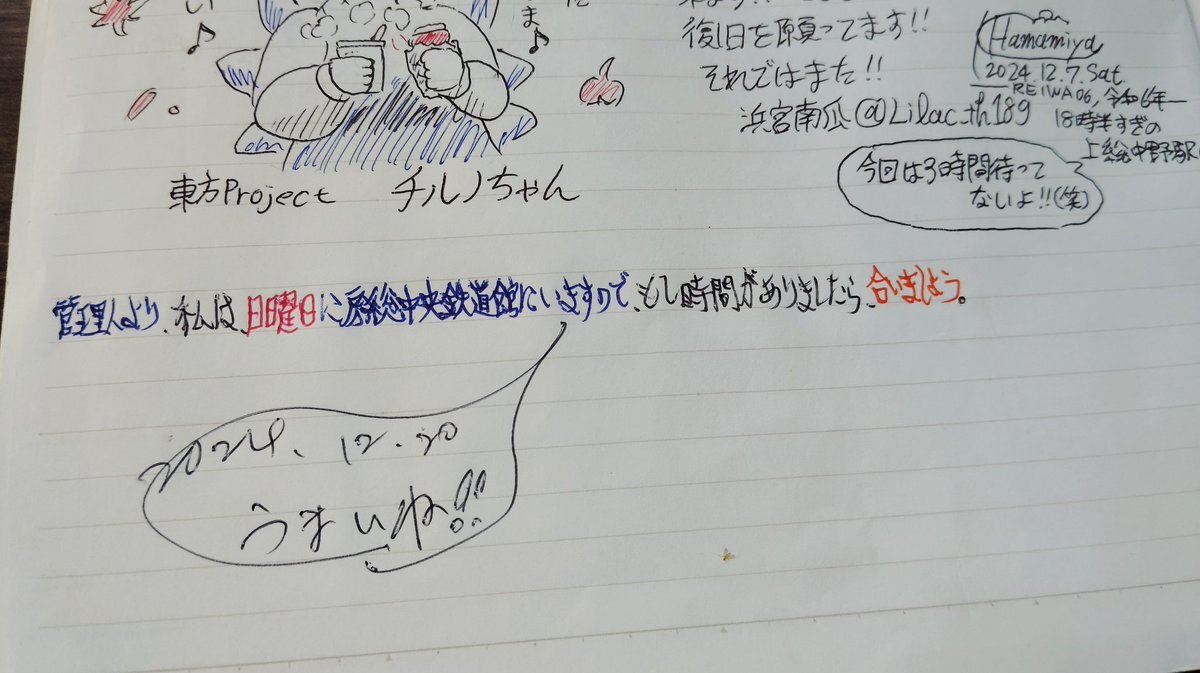 い
ま
復旧を願ってます!!
それではまた!!
浜宮南瓜@Lilac_th189
Hamamiya
2024.12.7.Sat.
REIWA06,令和6年
18時半すぎの
上総中野駅
今回は3時間待って
ないよ!!(笑)
東方Project チルノちゃん
管理人より、私は、日曜日に房総中央鉄道館にいますので、もし時間がありましたら、合いましょう。
2024.12.20
うまいね!!